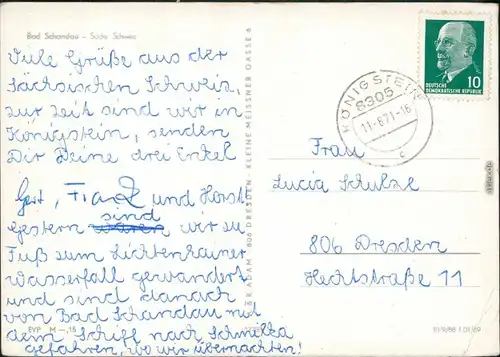 Bad Schandau – Sächs. Schweiz
Viele Grüße aus der
Sächsischen Schweiz,
zur Zeit sind wir in
Königstein, senden
Dir Deine drei Enkel
Gert, Frank und Horst
sind
Gestern waren wir zu
Fuß zum Lichtenhainer
Wasserfall gewandert
und sind danach
von Bad Schandau mit
dem Schiff nach Schmilka
gefahren, wo wir übernachten!
EVP M –,15
ADAM, 806 DRESDEN · KLEINE MEISSNER GASSE 6
DEUTSCHE
DEMOKRATISCHE REPUBLIK
10
KÖNIGSTEIN
8305
11.-6.71-16
c
Frau
Lucia Schulze
806 Dresden
Hechtstraße 11